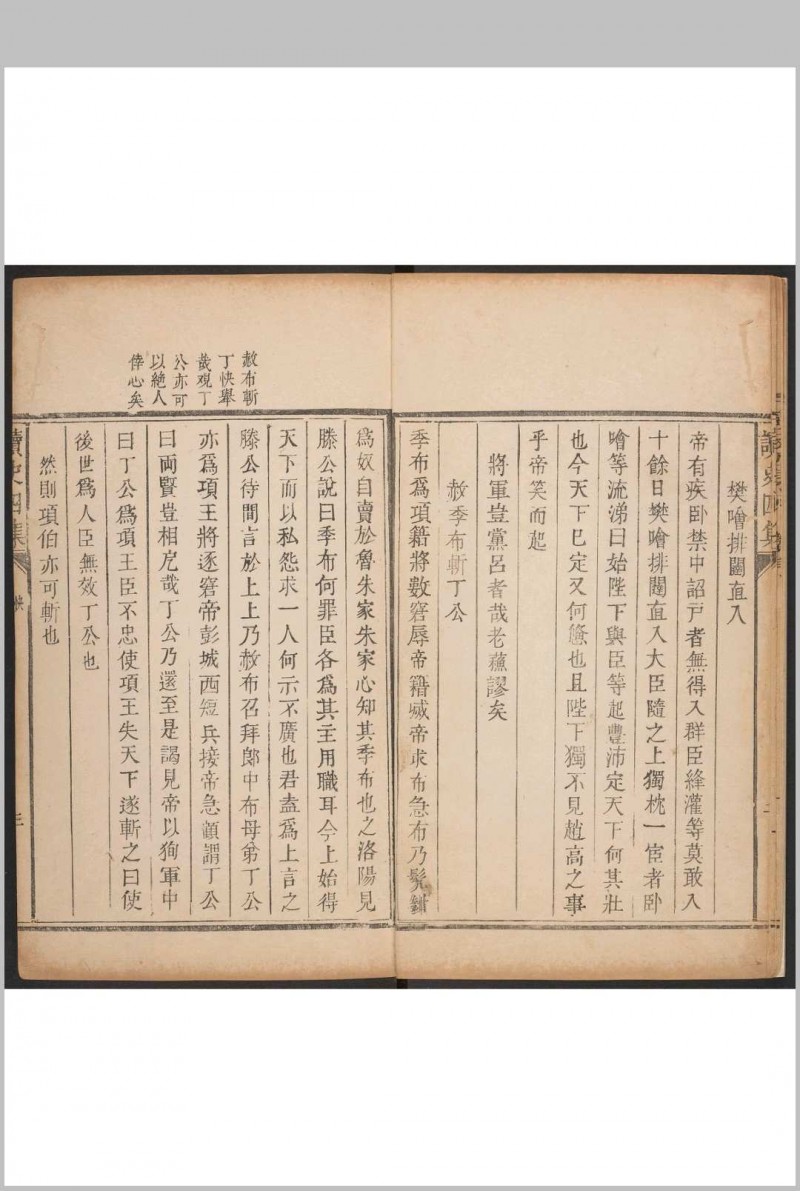 樊噲排闥直入
帝有疾卧禁中詔戸者無得入群臣絳灌等莫敢入
十餘日樊噲排闥直入大臣隨之上獨枕一宦者卧
噲等流涕曰始陛下與臣等起豐沛定天下何其壯
也今天下已定又何憊也且陛下獨不見趙高之事
乎帝笑而起
將軍豈黨呂者哉老蘓謬矣
赦季布斬丁公
季布爲項籍將數窘辱帝籍滅帝求布急布乃髠鉗
赦布斬
丁快舉
哉观丁
公亦可
以絶人
倖心矣
爲奴自賣於魯朱家朱家心知其季布也之洛陽見
滕公說曰季布何罪臣各爲其主用職耳今上始得
天下而以私怨求一人何示不廣也君盍爲上言之
滕公待間言於上上乃赦布召拜郎中布母弟丁公
亦爲項王將逐窘帝彭城西短兵接帝急顧謂丁公
曰両賢豈相戹哉丁公乃還至是謁見帝以狥軍中
曰丁公爲項王臣不忠使項王失天下遂斬之曰使
後世爲人臣無效丁公也
然則項伯亦可斬也
讀史四集
三